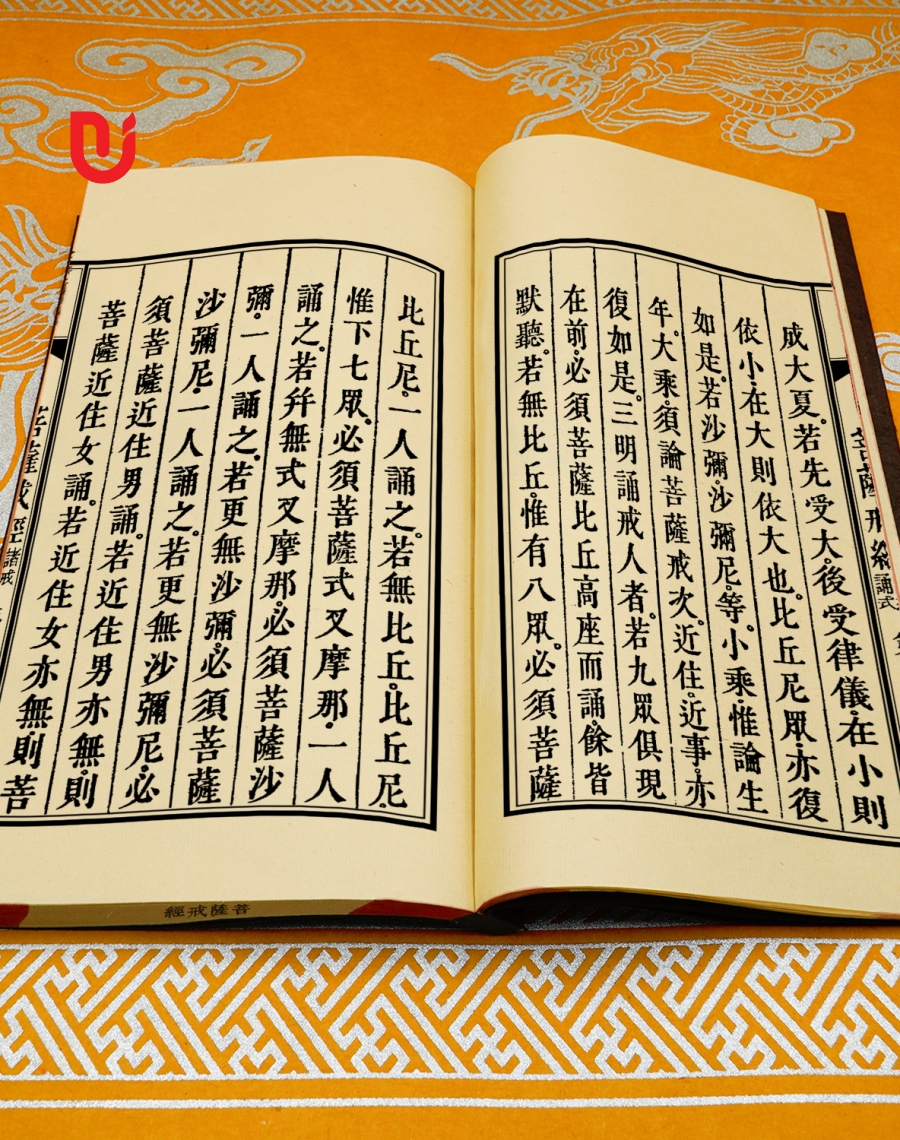 成大夏。若先受大。後受律儀在小則
依小。在大則依大也。比丘尼眾。亦復
如是。若沙彌。沙彌尼等。小乘。惟論生
年。大乘。須論菩薩戒次。近住。近事。亦
復如是。三明誦戒人者。若九眾俱現
在前。必須菩薩比丘高座而誦。餘皆
默聽。若無比丘。惟有八眾。必須菩薩
比丘尼。一人誦之。若無比丘。比丘尼。
惟下七眾。必須菩薩式叉摩那。一人
誦之。若并無式叉摩那。必須菩薩沙
彌。一人誦之。若更無沙彌。必須菩薩
沙彌尼。一人誦之。若更無沙彌尼。必
須菩薩近住男誦。若近住男亦無。則
菩薩近住女誦。若近住女亦無。則菩
菩薩戒經
誦式
菩薩戒經
諸戒
菩薩戒經